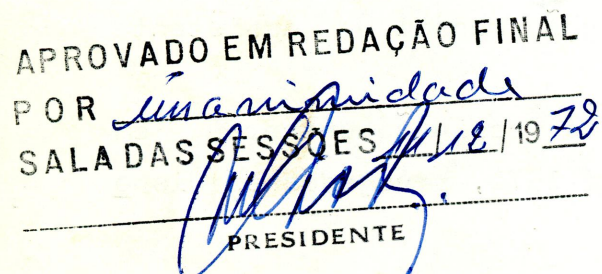 APROVADO EM REDAÇÃO FINAL
POR unanimidade
SALA DAS SESSÕES 11/12/1972
PRESIDENTE